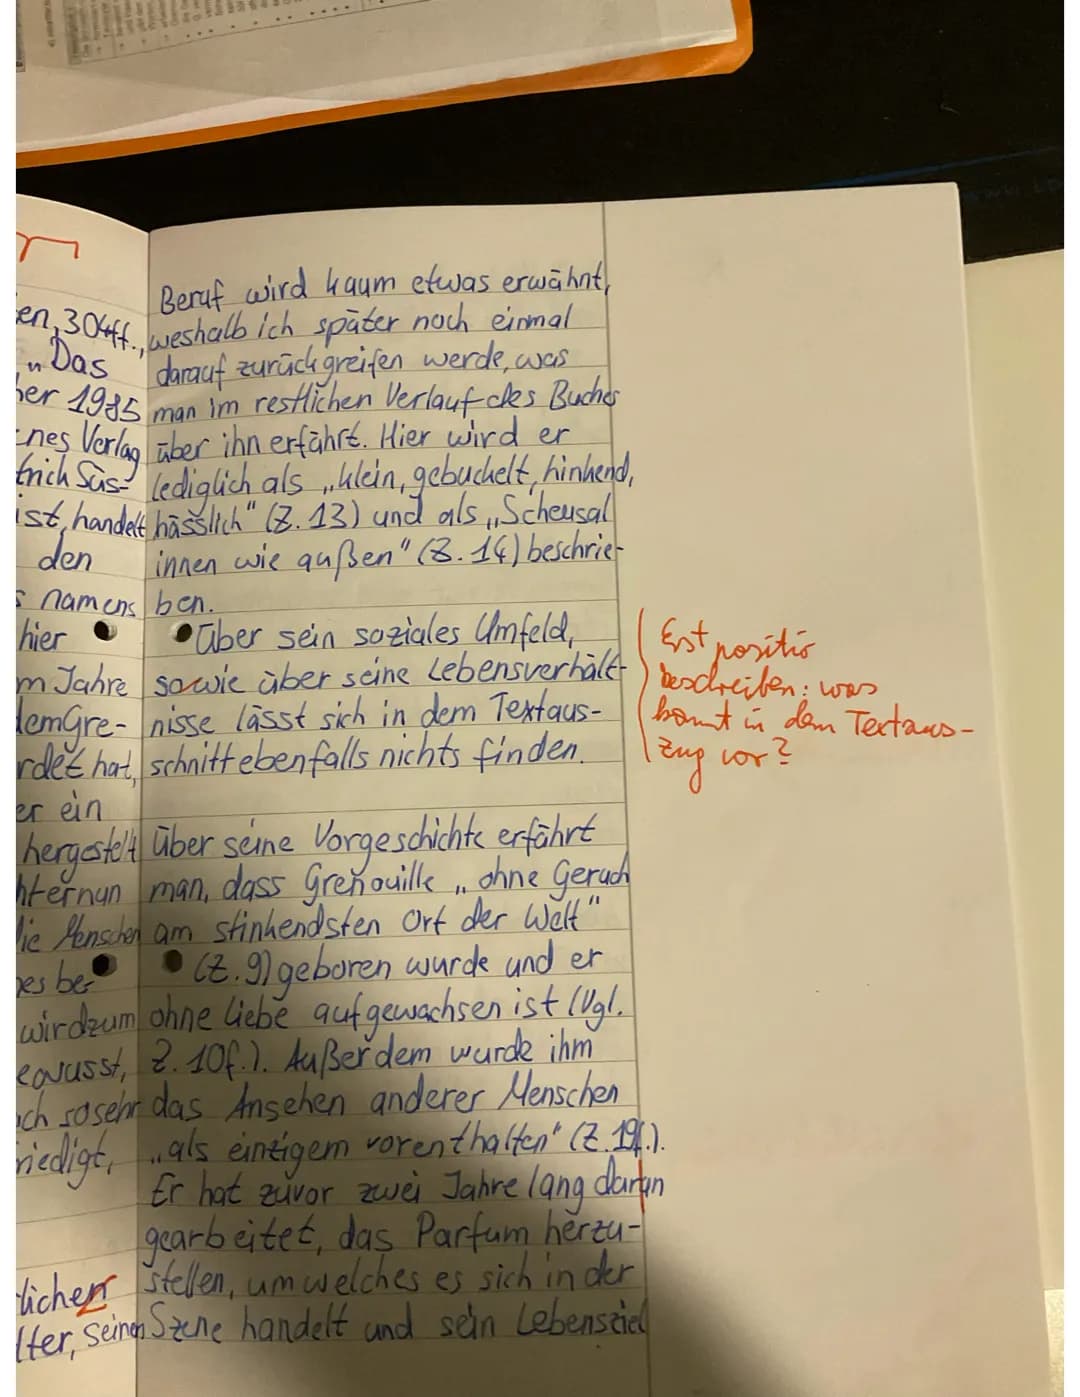 en, 304ff.,
„Das
er 1985
enes Verlag
trick Süs-
ist, handelt
den
s namens
hier
m Jahre
dem Gre-
rdet hat,
er ein
hergestellt
hter nun
die Menschen
es be-
wird zum
ewusst,
ich so sehr
riedigt,
lichen
lter, seinen
Beruf wird kaum etwas erwähnt,
weshalb ich später noch einmal
darauf zurückgreifen werde, was
man im restlichen Verlauf des Buches
über ihn erfährt. Hier wird er
lediglich als „klein, gebuckelt, hinkend,
hässlich" (Z. 13) und als „Scheusal
innen wie außen" (Z. 14) beschrie-
ben.
Über sein soziales Umfeld,
sowie über seine Lebensverhält-
nisse lässt sich in dem Textaus-
schnitt ebenfalls nichts finden.
Über seine Vorgeschichte erfährt
man, dass Grenouille „ohne Geruch
am stinkendsten Ort der Welt"
(Z. 9) geboren wurde und er
ohne Liebe aufgewachsen ist (Vgl.
Z. 10f.). Außerdem wurde ihm
das Ansehen anderer Menschen
„als einzigem vorenthalten" (Z. 19f.).
Er hat zuvor zwei Jahre lang daran
gearbeitet, das Parfum herzu-
stellen, um welches es sich in der
Szene handelt und sein Lebensziel
Erst positiv
beschreiben: was
kommt in dem Textaus-
zug vor?